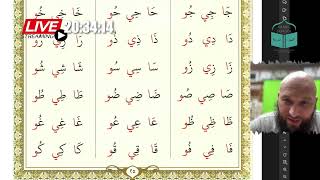 LIVE 20:34:14
STREAMING
جَا جِي جُو حَا حِي حُو خَا خِي خُو
دَا دِي دُو ذَا ذِي ذُو رَا رِي رُو
زَا زِي زُو سَا سِي سُو شَا شِي شُو
صَا صِي صُو ضَا ضِي ضُو طَا طِي طُو
ظَا ظِي ظُو عَا عِي عُو غَا غِي غُو
فَا فِي فُو قَا قِي قُو كَا كِي كُو
٢٥